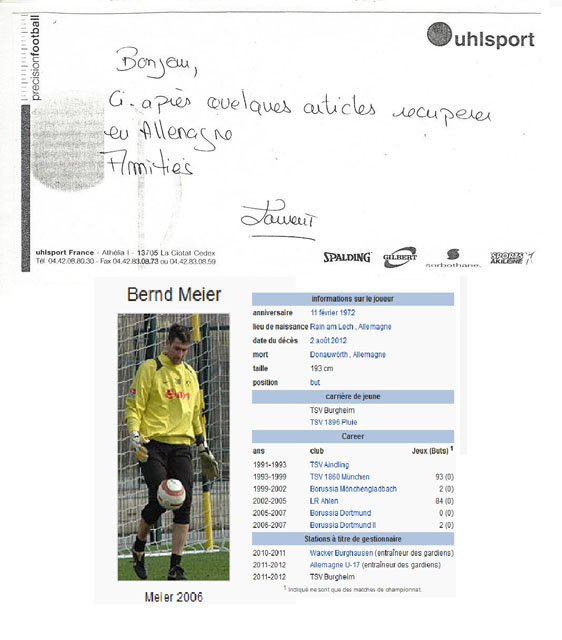 precisionfootball
uhlsport
Bonjour,
Ci-après quelques articles recuperer
en Allemagne
Amitiés
Laurent
uhlsport France - Athélia I - 13705 La Ciotat Cedex
Tél. 04.42.08.80.30 - Fax 04.42.83.08.73 ou 04.42.83.08.59
SPALDING GILBERT sorbothane. SPORTS AKILEINE
Bernd Meier
informations sur le joueur
anniversaire 11 février 1972
lieu de naissance Rain am Lech , Allemagne
date du décès 2 août 2012
mort Donauwörth , Allemagne
taille 193 cm
position but
carrière de jeune
TSV Burgheim
TSV 1896 Pluie
Career
ans club Jeux (Buts) 1
1991-1993 TSV Aindling
1993-1999 TSV 1860 München 93 (0)
1999-2002 Borussia Mönchengladbach 2 (0)
2002-2005 LR Ahlen 84 (0)
2005-2007 Borussia Dortmund 0 (0)
2006-2007 Borussia Dortmund II 2 (0)
Stations à titre de gestionnaire
2010-2011 Wacker Burghausen (entraîneur des gardiens)
2011-2012 Allemagne U-17 (entraîneur des gardiens)
2011-2012 TSV Burgheim
1 Indiqué ne sont que des matches de championnat.
Meier 2006